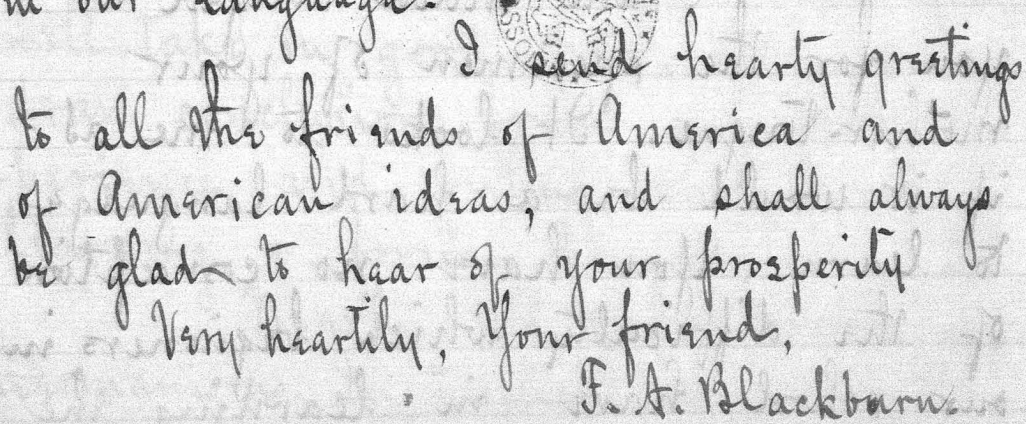 in our language.
I send hearty greetings
to all the friends of America and
of American ideas, and shall always
be glad to hear of your prosperity
Very heartily, Your friend,
F. A. Blackburn.